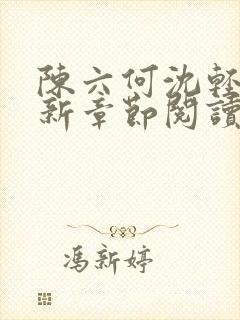 陳六何沈輕
新章節閱讀
馮新婷